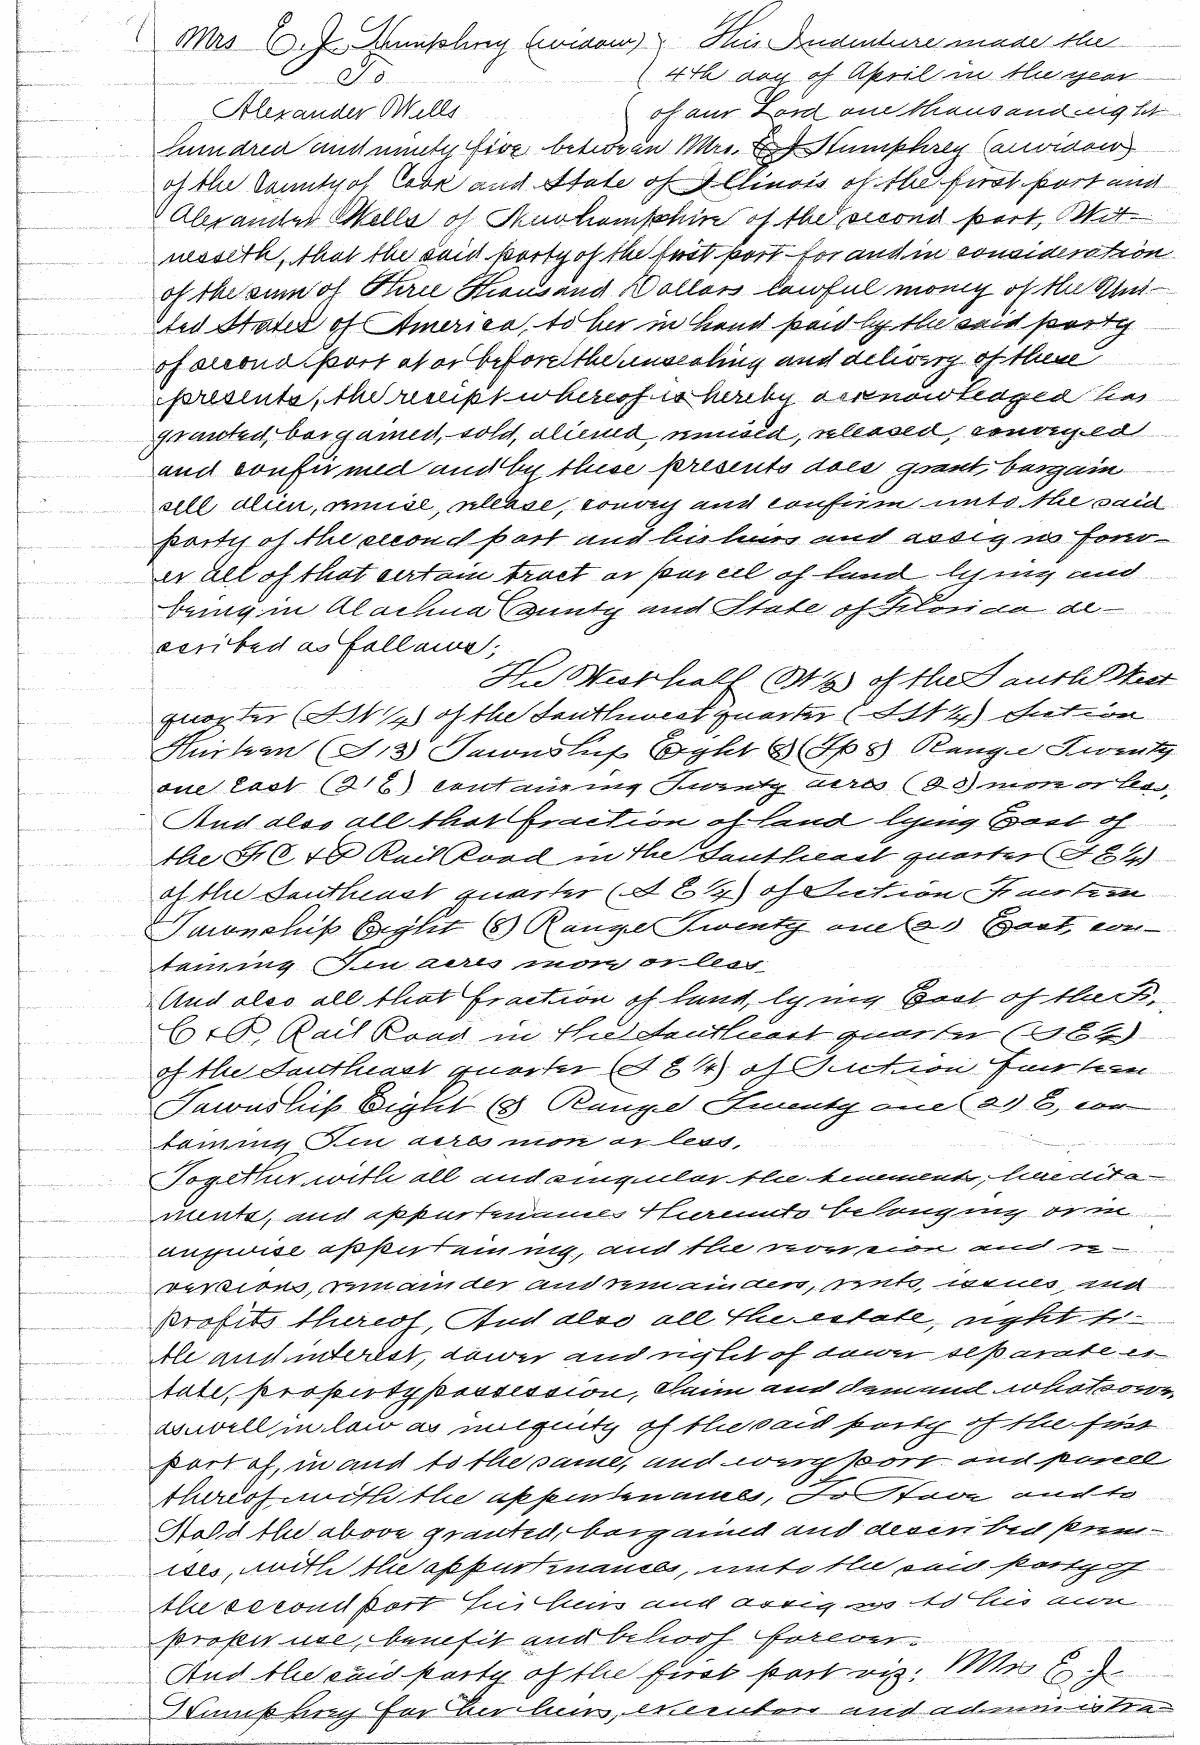 Mrs E. J. Humphrey (widow) This Indenture made the
To 4th day of April in the year
Alexander Wells of our Lord one thousand eight
hundred and ninety five between Mrs. E J Humphrey (a widow)
of the County of Cook and State of Illinois of the first part and
Alexander Wells of Newhampshire of the second part, Wit-
nesseth, that the said party of the first part for and in consideration
of the sum of Three Thousand Dollars lawful money of the Uni-
ted States of America, to her in hand paid by the said party
of second part at or before the ensealing and delivery of these
presents, the receipt whereof is hereby acknowledged has
granted, bargained, sold, aliened, remised, released, conveyed
and confirmed and by these presents does grant, bargain
sell alien, remise, release, convey and confirm unto the said
party of the second part and his heirs and assigns forev-
er all of that certain tract or parcel of land lying and
being in Alachua County and State of Florida de-
scribed as follows;
The West half (W½) of the South West
quarter (SW¼) of the Southwest quarter (SW¼) Section
Thirteen (S13) Township Eight 8 (Tp 8) Range Twenty
one East (21E) containing Twenty acres (20) more or less,
And also all that fraction of land lying East of
the F C & P Rail Road in the Southeast quarter (SE¼)
of the Southeast quarter (SE¼) of Section Fourteen
Township Eight (8) Range Twenty one (21) East, con-
taining Ten acres more or less
And also all that fraction of land, lying East of the F.
C & P. Rail Road in the Southeast quarter (SE¼)
of the Southeast quarter (SE¼) of Section fourteen
Township Eight (8) Range Twenty one (21) E, con
taining Ten acres more or less.
Together with all and singular the tenements, heredita-
ments, and appurtenances thereunto belonging or in
anywise appertaining, and the reversion and re-
versions, remainder and remainders, rents, issues, and
profits thereof, And also all the estate, right ti-
tle and interest, dower and right of dower separate es
tate, property possession, claim and demand whatsoever
as well in law as in equity of the said party of the first
part of, in and to the same, and every part and parcel
thereof with the appurtenances, To Have and to
Hold the above granted, bargained and described prem-
ises, with the appurtenances, unto the said party of
the second part his heirs and assigns to his own
proper use, benefit and behoof forever.
And the said party of the first part viz: Mrs E. J.
Humphrey for her heirs, executors and administra